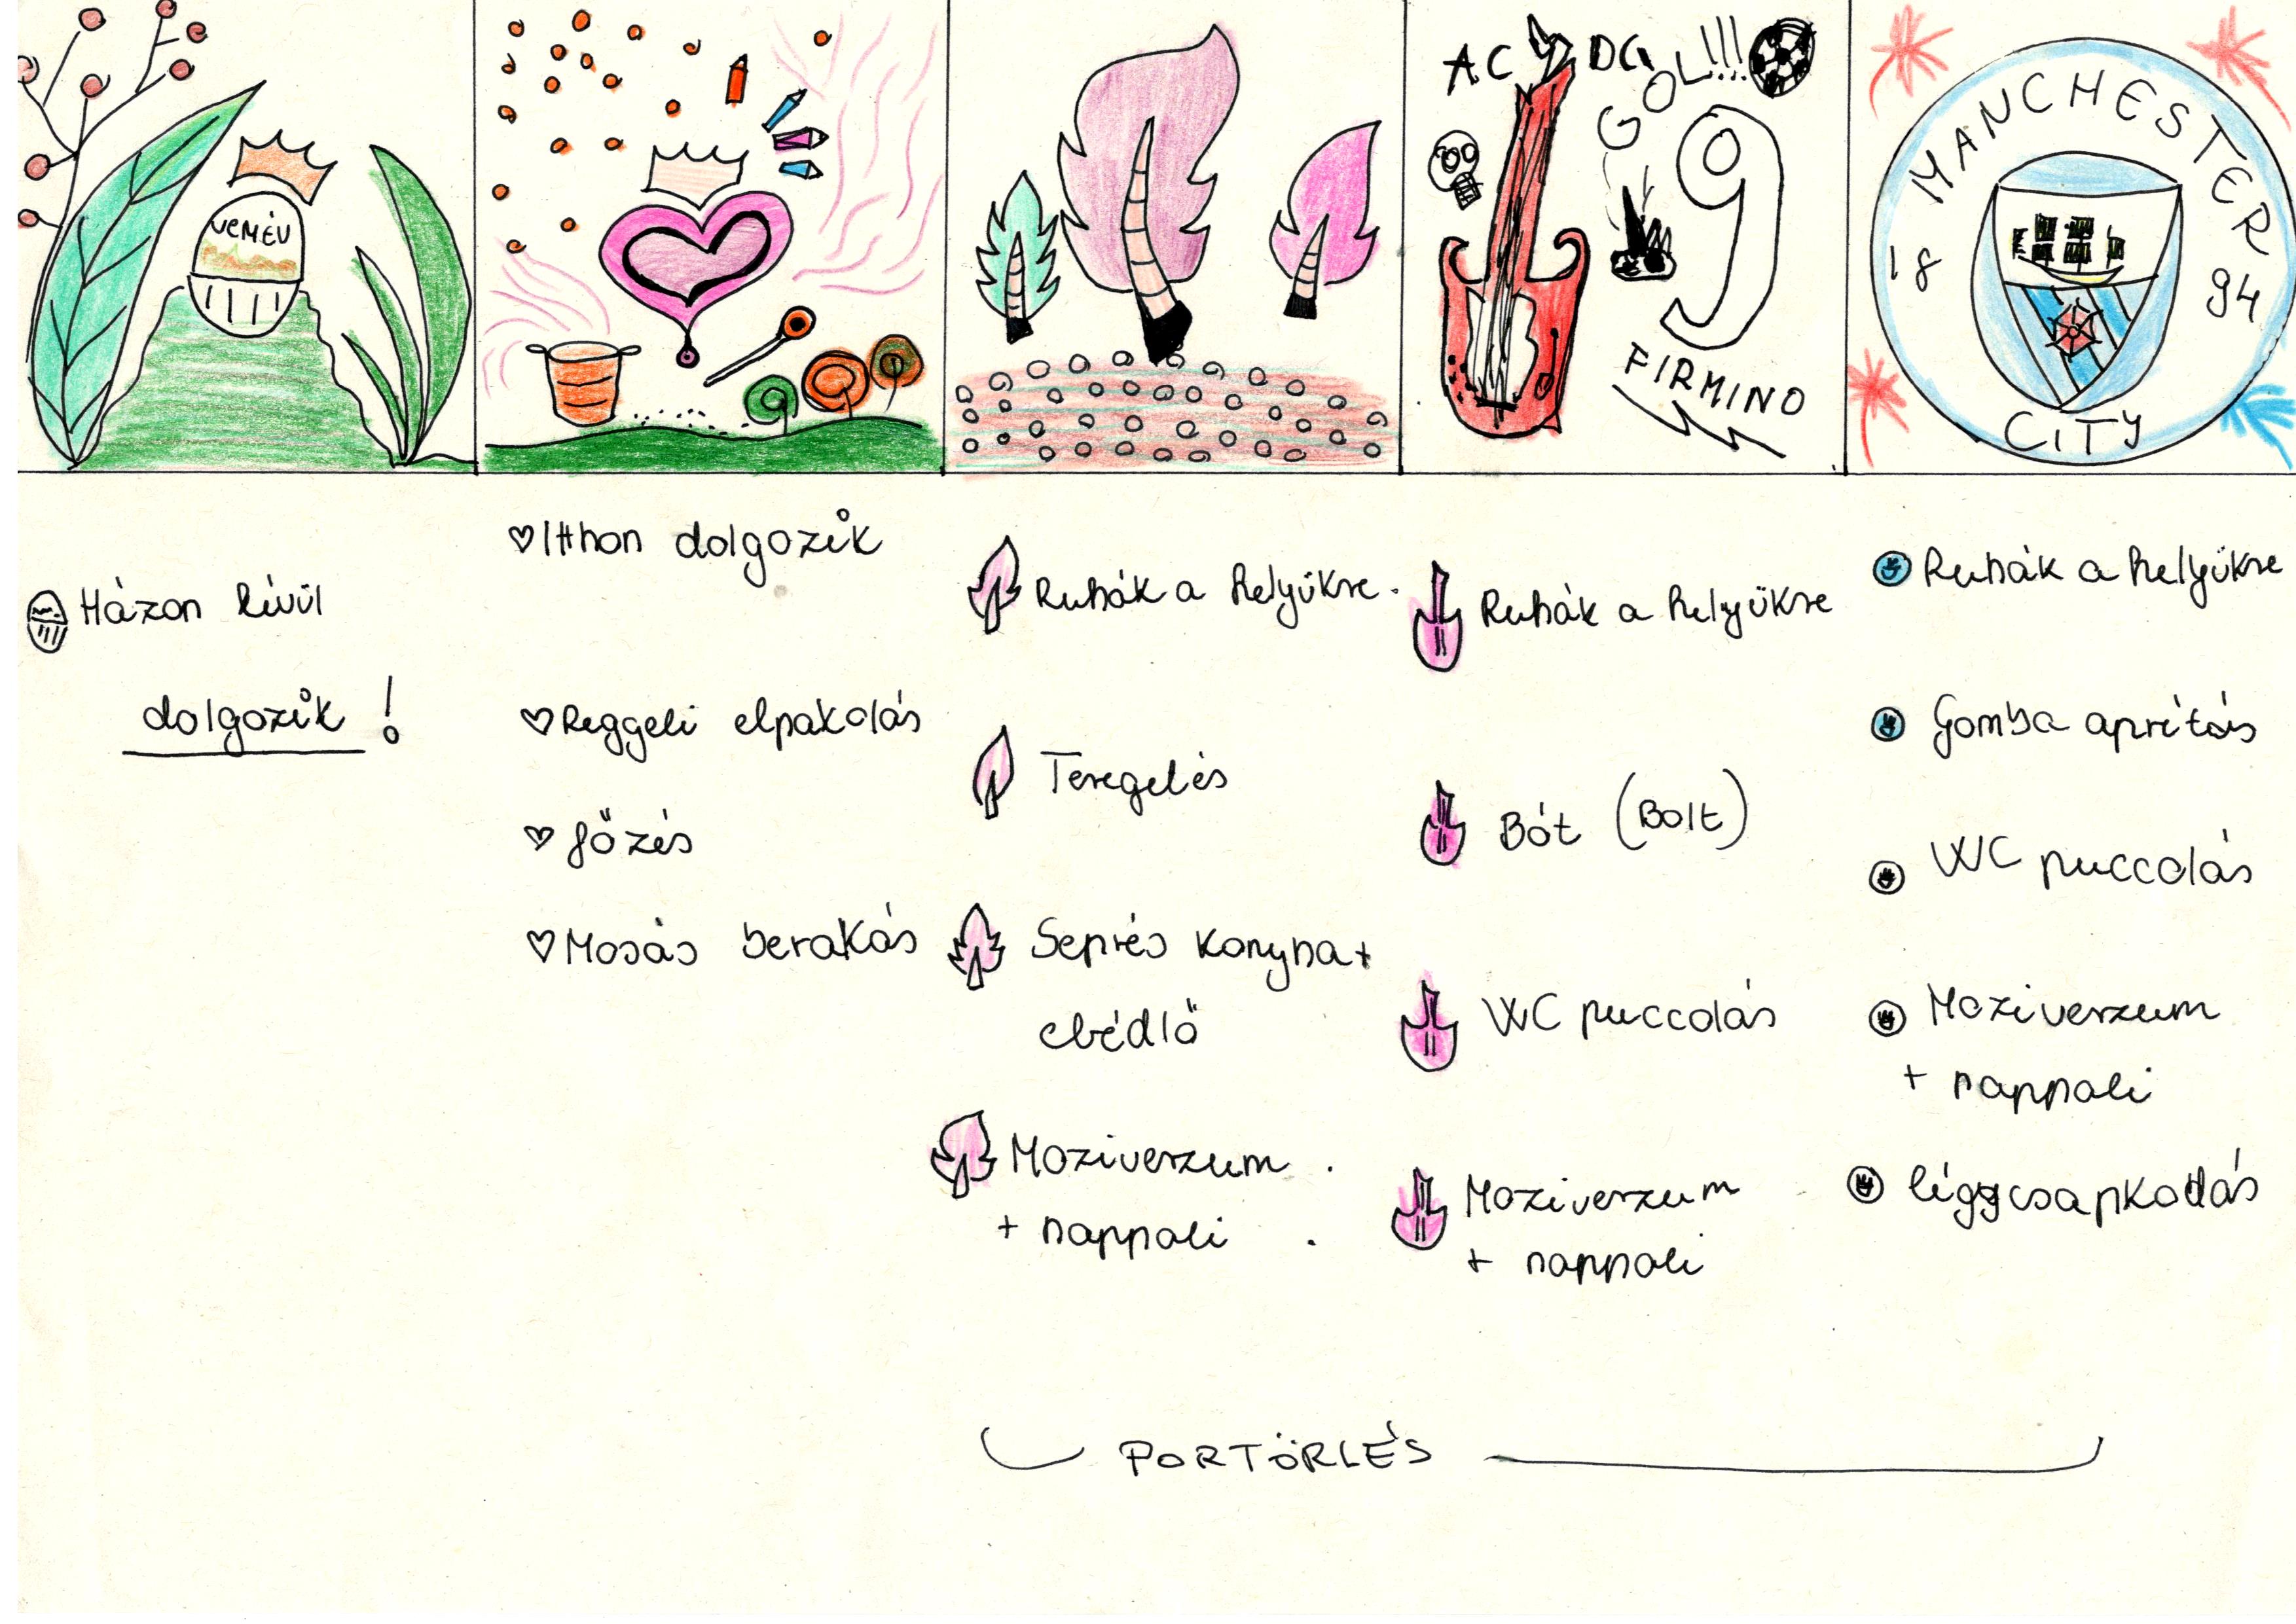 VEMÉV
AC DC
GOL!!!
9
FIRMINO
MANCHESTER
18 94
CITY
Házon kívül
dolgozik!
Itthon dolgozik
Reggeli elpakolás
főzés
Mosás berakás
Ruhák a helyükre.
Teregelés
Seprés konyha +
ebédlő
Moziverzum
+ nappali
Ruhák a helyükre
Bót (Bolt)
WC puccolás
Moziverzum
+ nappali
Ruhák a helyükre
Gomba aprítás
WC puccolás
Moziverzum
+ nappali
légycsapkodás
PORTÖRLÉS